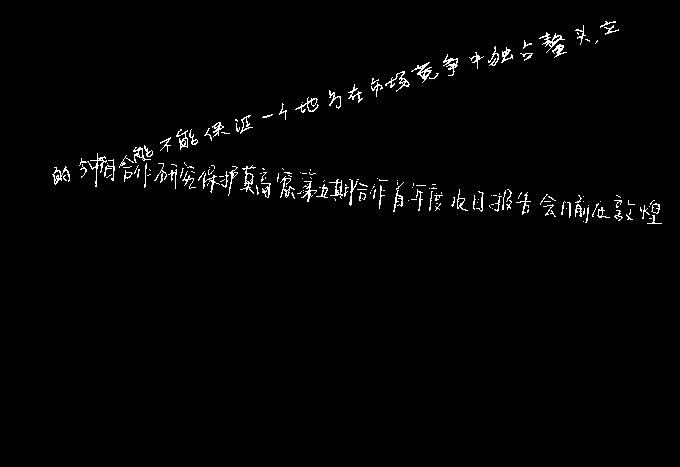 能不能保证一个地方在市场竞争中独占鳌头,立
中日合作研究保护莫高窟第五期合作首年度项目报告会日前在敦煌